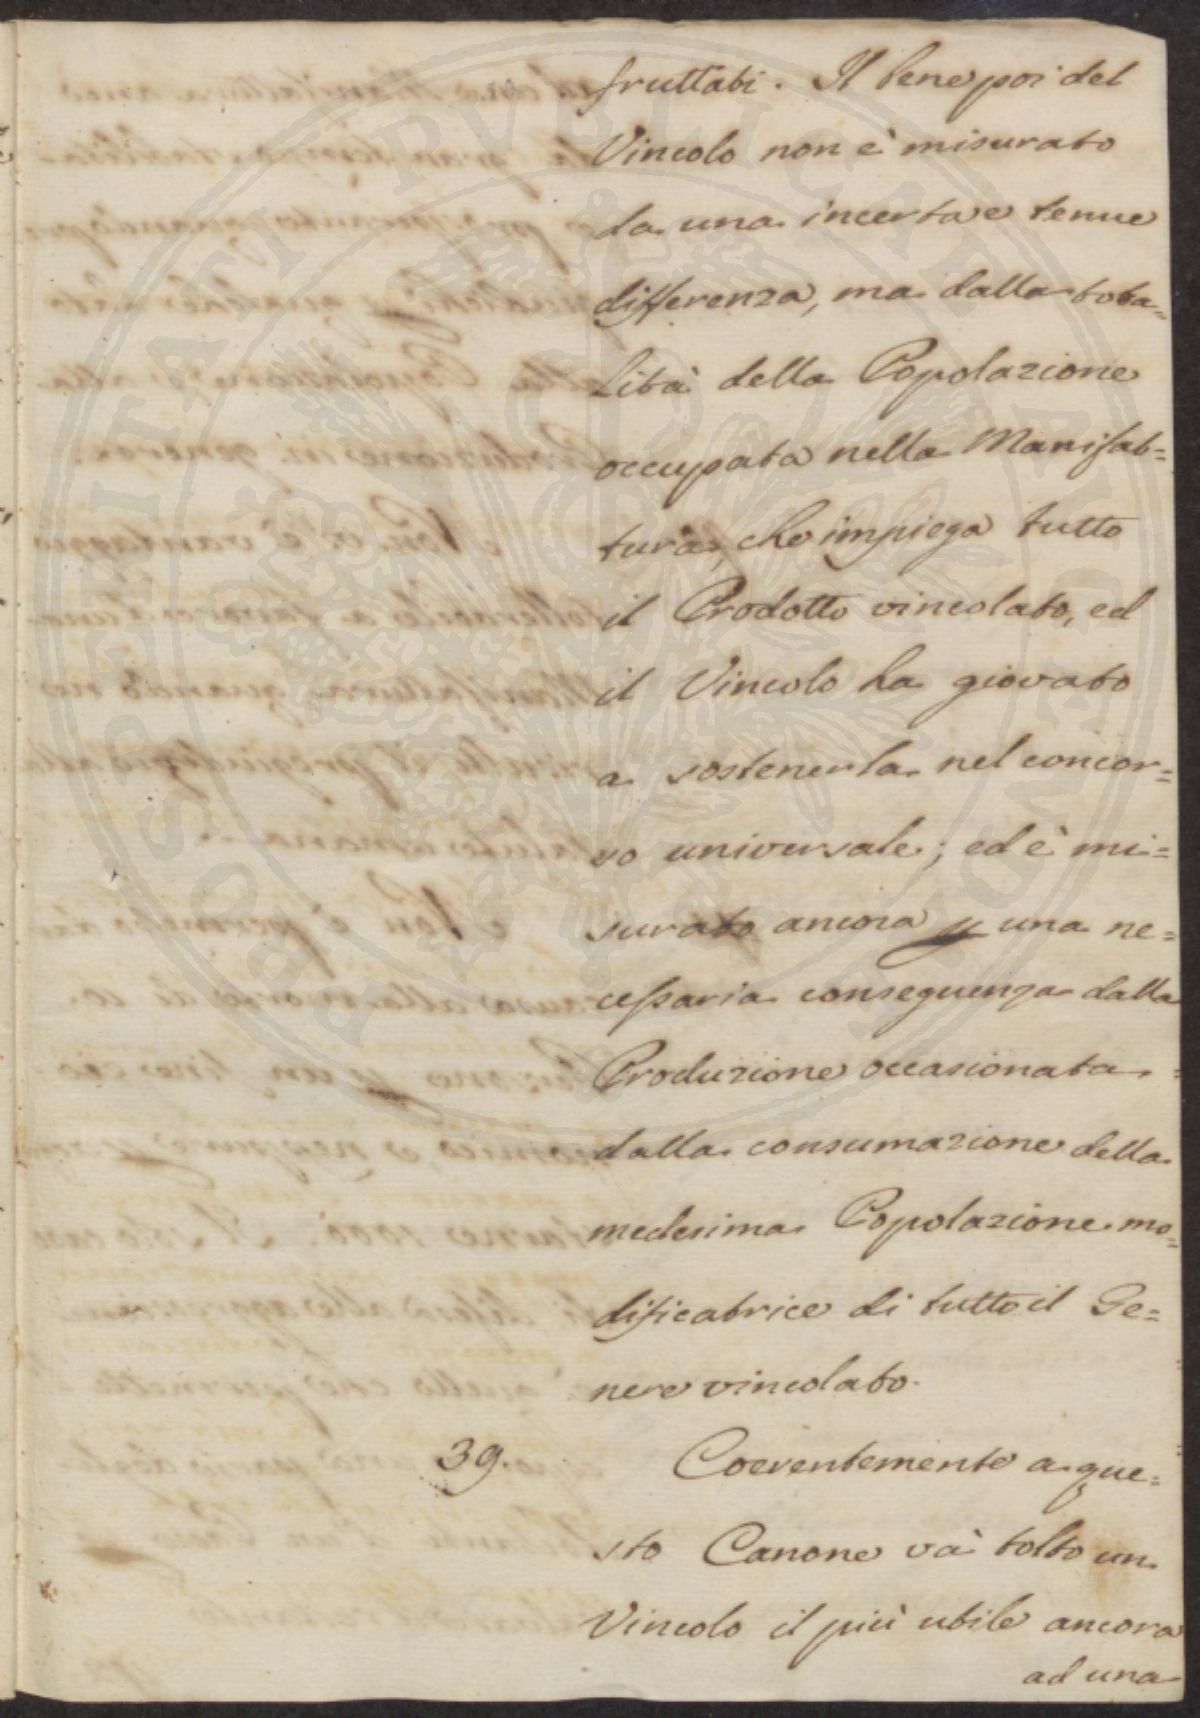 fruttati. Il bene poi del
Vincolo non è misurato
da una incerta e tenue
differenza, ma dalla tota=
lità della Popolazione
occupata nella Manifat=
tura, che impiega tutto
il Prodotto vincolato, ed
il Vincolo ha giovato
a sostenerla nel concor=
so universale; ed è mi=
surato ancora p una ne=
cessaria conseguenza dalla
Produzione occasionata
dalla consumazione della
medesima Popolazione mo=
dificatrice di tutto il Ge=
nere vincolato.
39. Coerentemente a que=
sto Canone và tolto un
Vincolo il più utile ancora
ad una